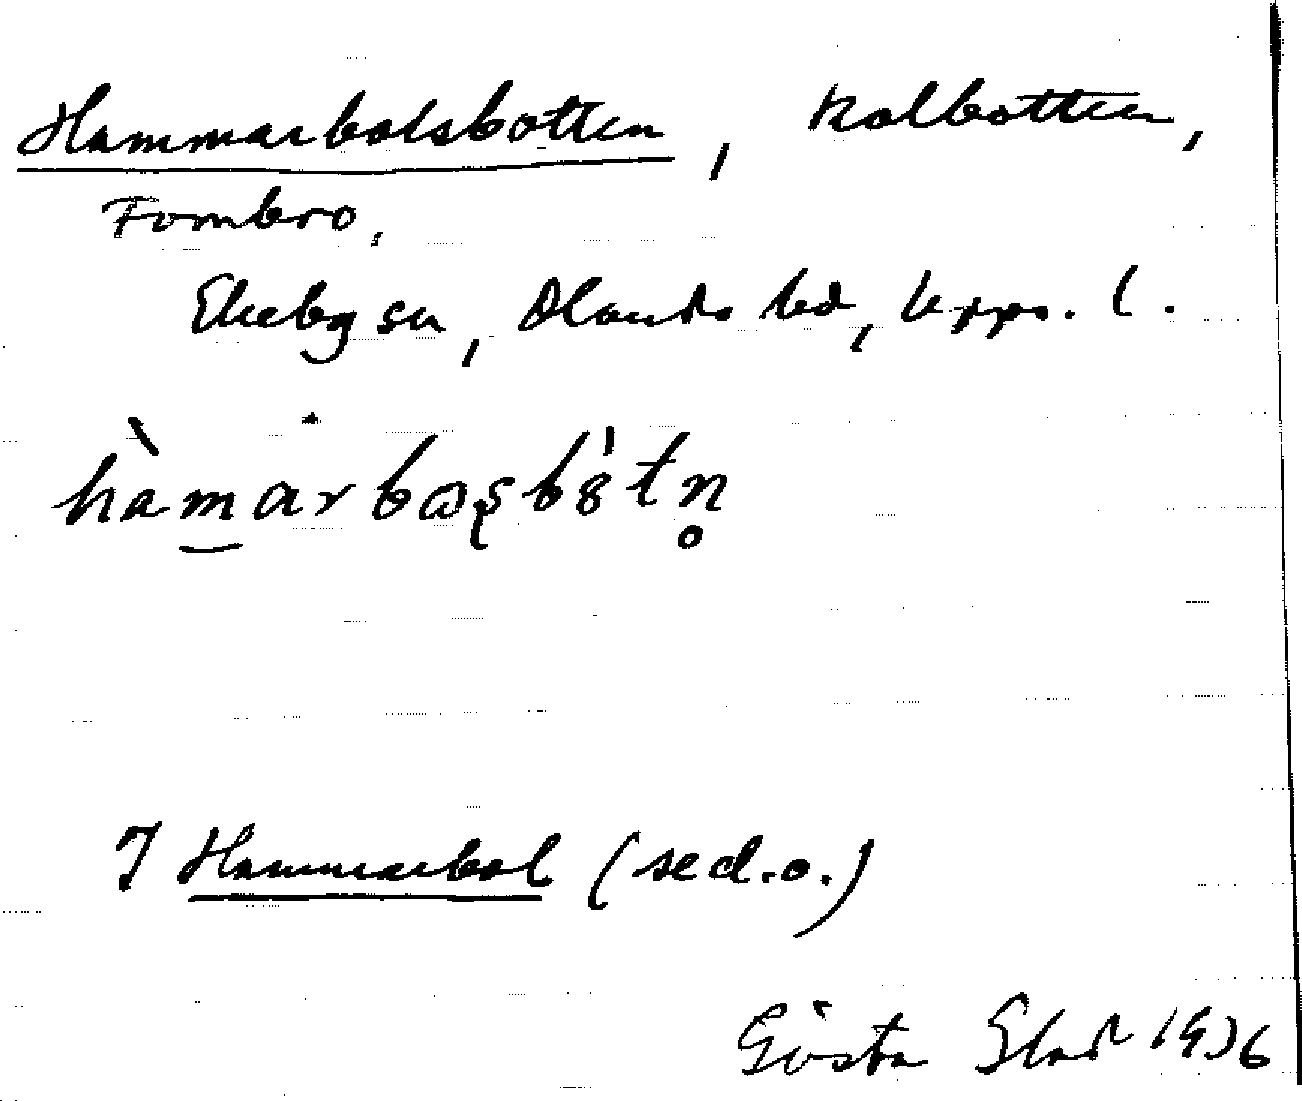 Hammarbolsbotten, kolbotten,
Fombro,
Ekeby sn, Olands hd, Upps. l.
hàmarbωʂbȣ́tn̥
I Hammarbol (se d.o.)
Gösta 1936